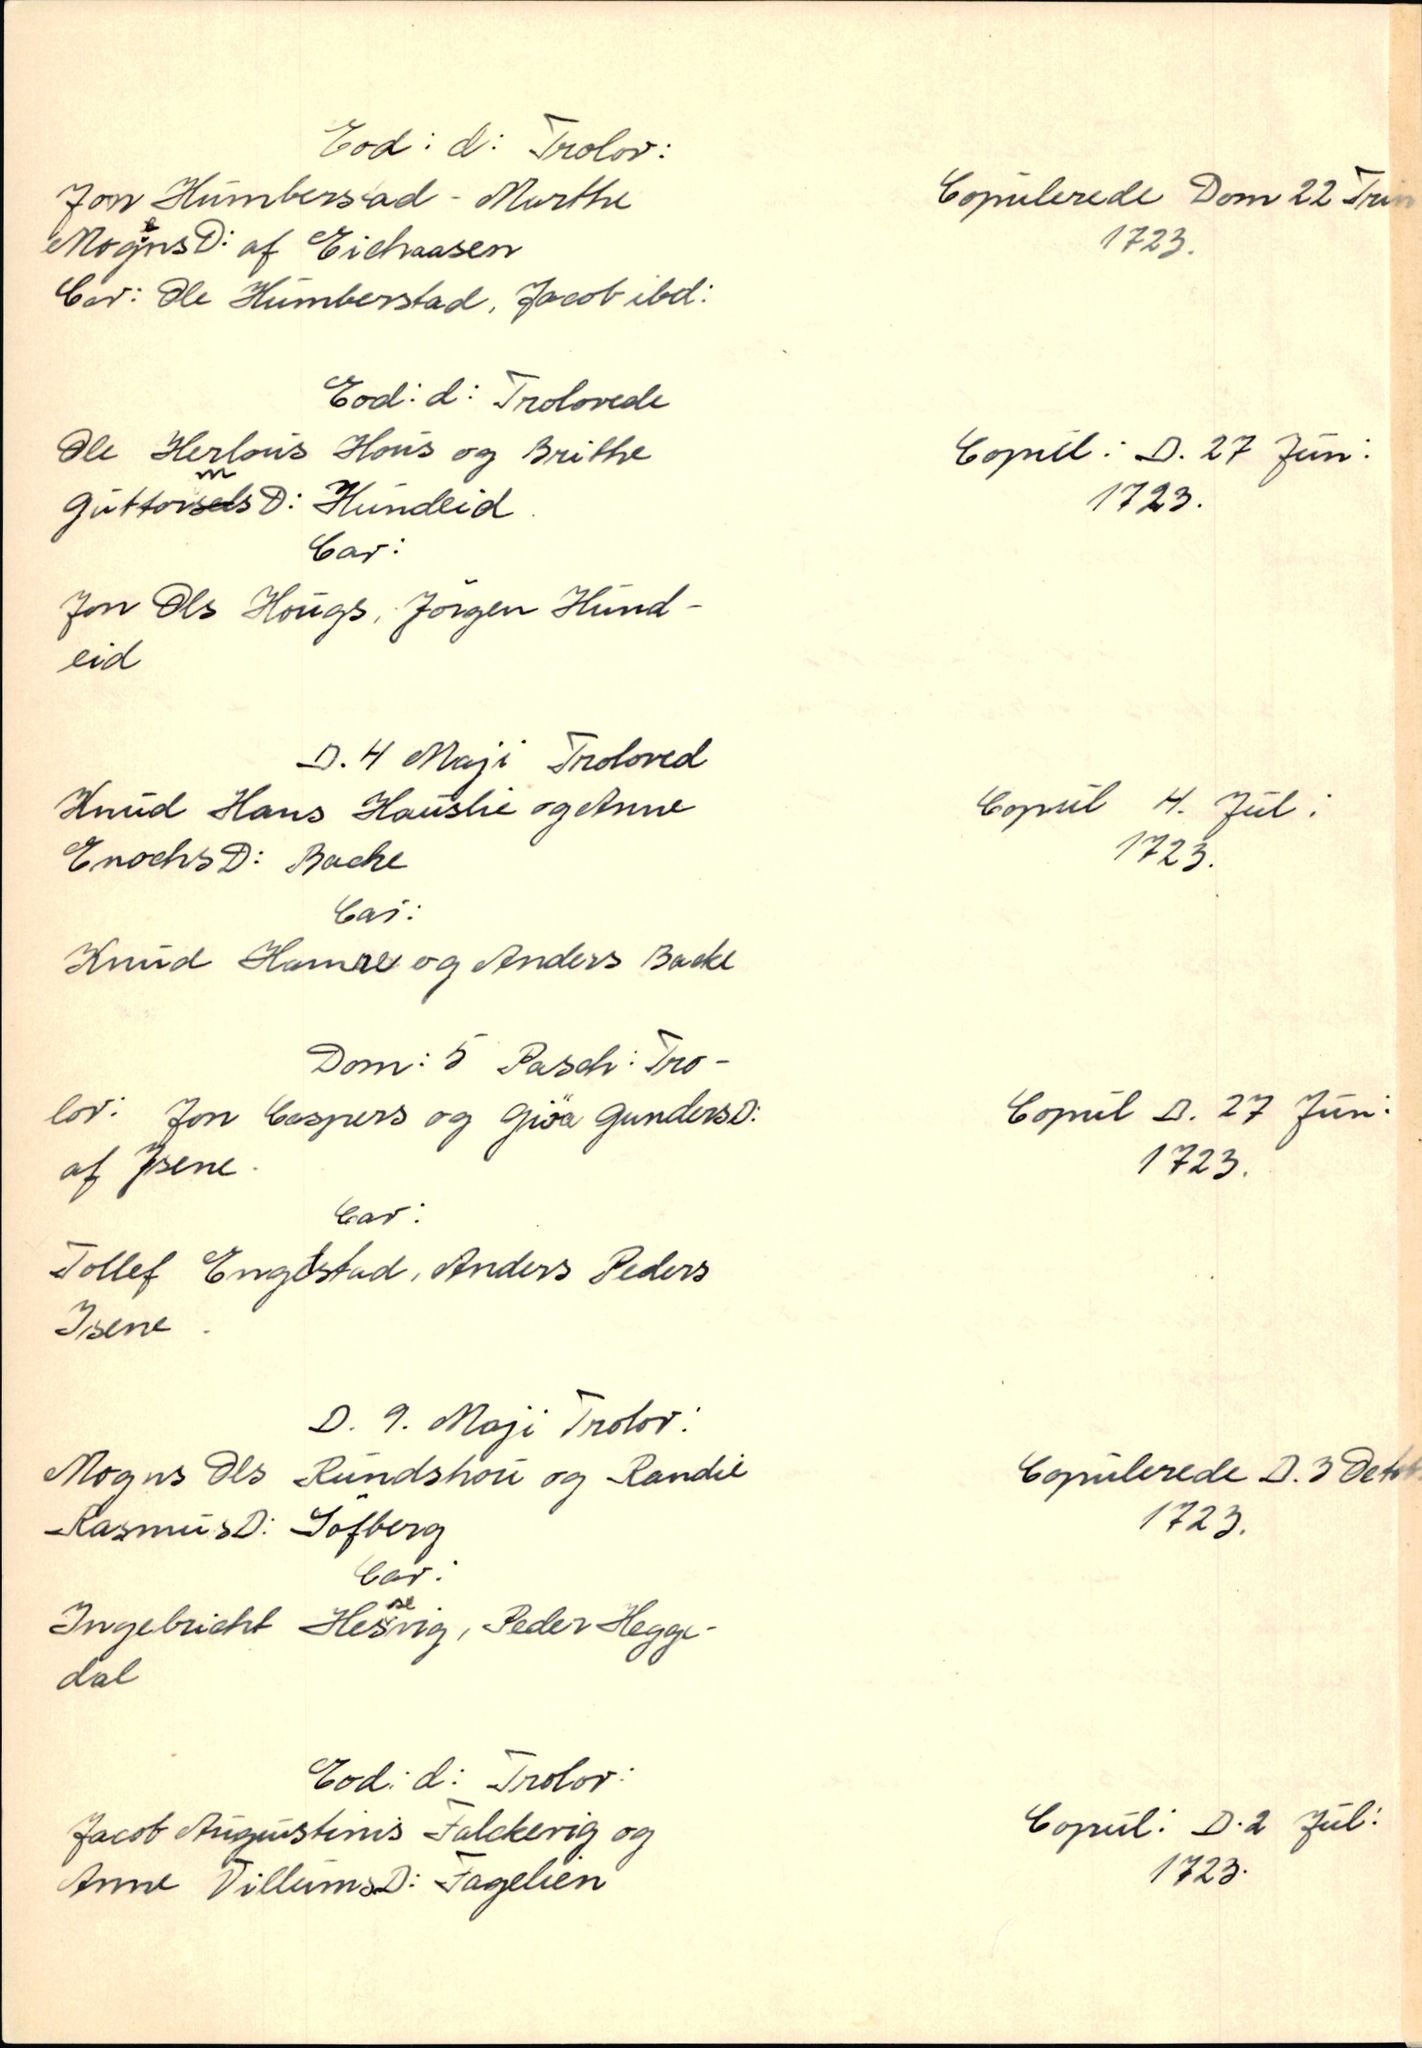 Eod: d: Trolov:
Jon Humberstad - Marthe
MognsD: af Eichaasen
Cav: Ole Humberstad, Jacob ibd:
Copulerede Dom 22 Trin
1723.
Eod: d: Trolovede
Ole Herlous Hous og Brithe
GuttormsD: Hundeid.
Cav:
Jon Ols Hougs, Jörgen Hund-
eid
Copul: D. 27 Jun:
1723.
D. 4 Maji Troloved
Knud Hans Hauslie og Anne
EnochsD: Backe
Cav:
Knud Hamre og Anders Backe
Copul 4. Jul:
1723.
Dom: 5 Pasch: Tro-
lov: Jon Caspers og Giöa GundersD:
af Isene.
Cav:
Tollef Engelstad, Anders Peders
Isene.
Copul D. 27 Jun:
1723.
D. 9. Maji Trolov:
Mogns Ols Rundshou og Randie
RasmusD: Söfberg
Cav:
Ingebricht Hesevig, Peder Hegge-
dal
Copulerede D. 3 Octob
1723.
Eod: d: Trolov:
Jacob Augustinis Falckevig og
Anne VillumsD: Fagelien
Copul: D. 2 Jul:
1723.